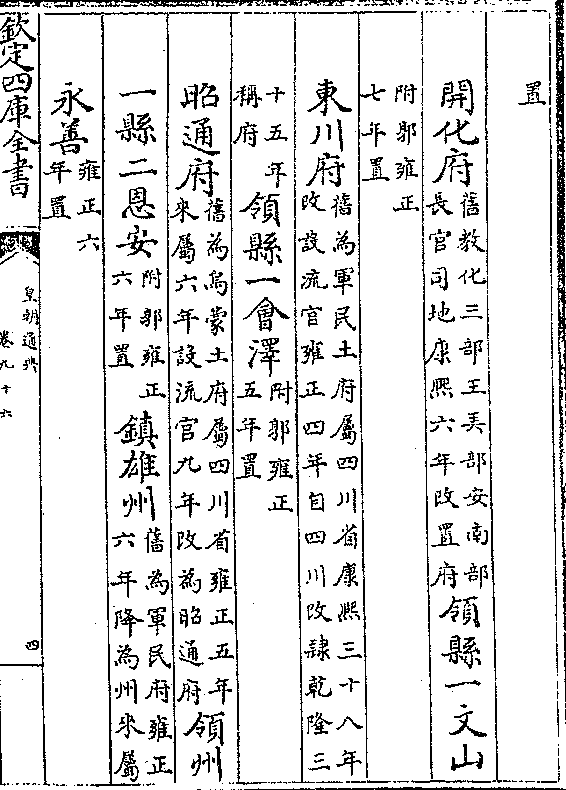 置
開化府舊教化三部王弄部安南部長官司地康熙六年改置府領縣一文山
附郭雍正七年置
東川府舊為軍民土府屬四川省康熙三十八年改設流官雍正四年自四川改隸乾隆三
十五年稱府領縣一會澤附郭雍正五年置
昭通府舊為烏蒙土府屬四川省雍正五年來屬六年設流官九年改為昭通府領州
一縣二恩安附郭雍正六年置鎮雄州舊為軍民府雍正六年降為州來屬
永善雍正六年置
欽定四庫全書
皇朝通典
卷九十六
四